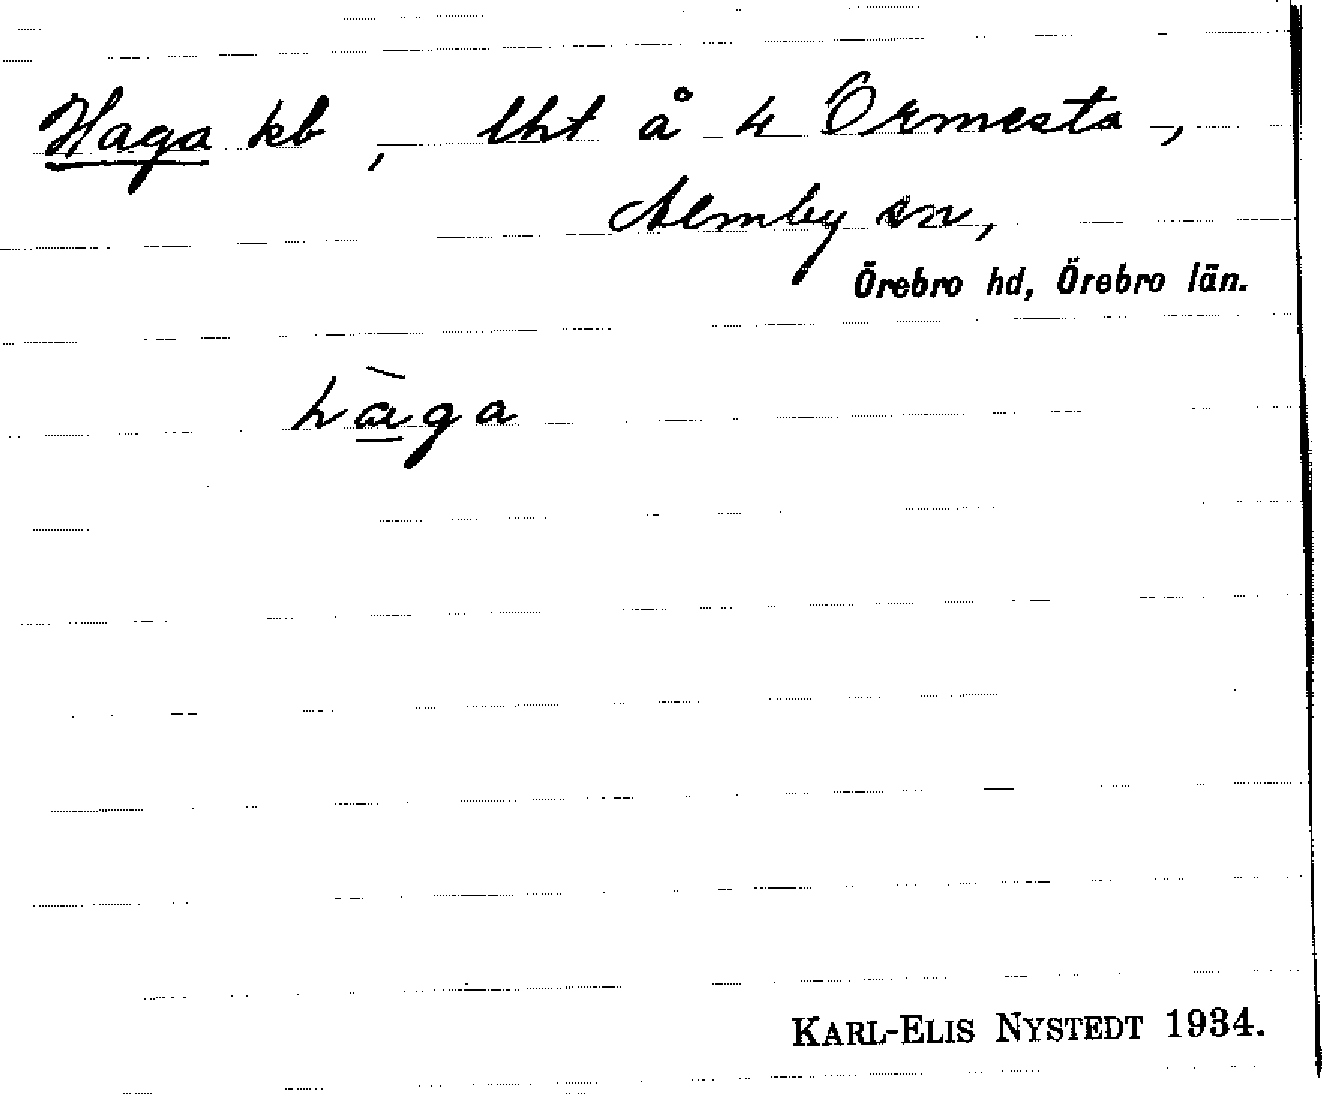 Haga kb, lht å 4 Ormesta,
Almby sn,
Örebro hd, Örebro län.
hàga
KARL-ELIS NYSTEDT 1934.